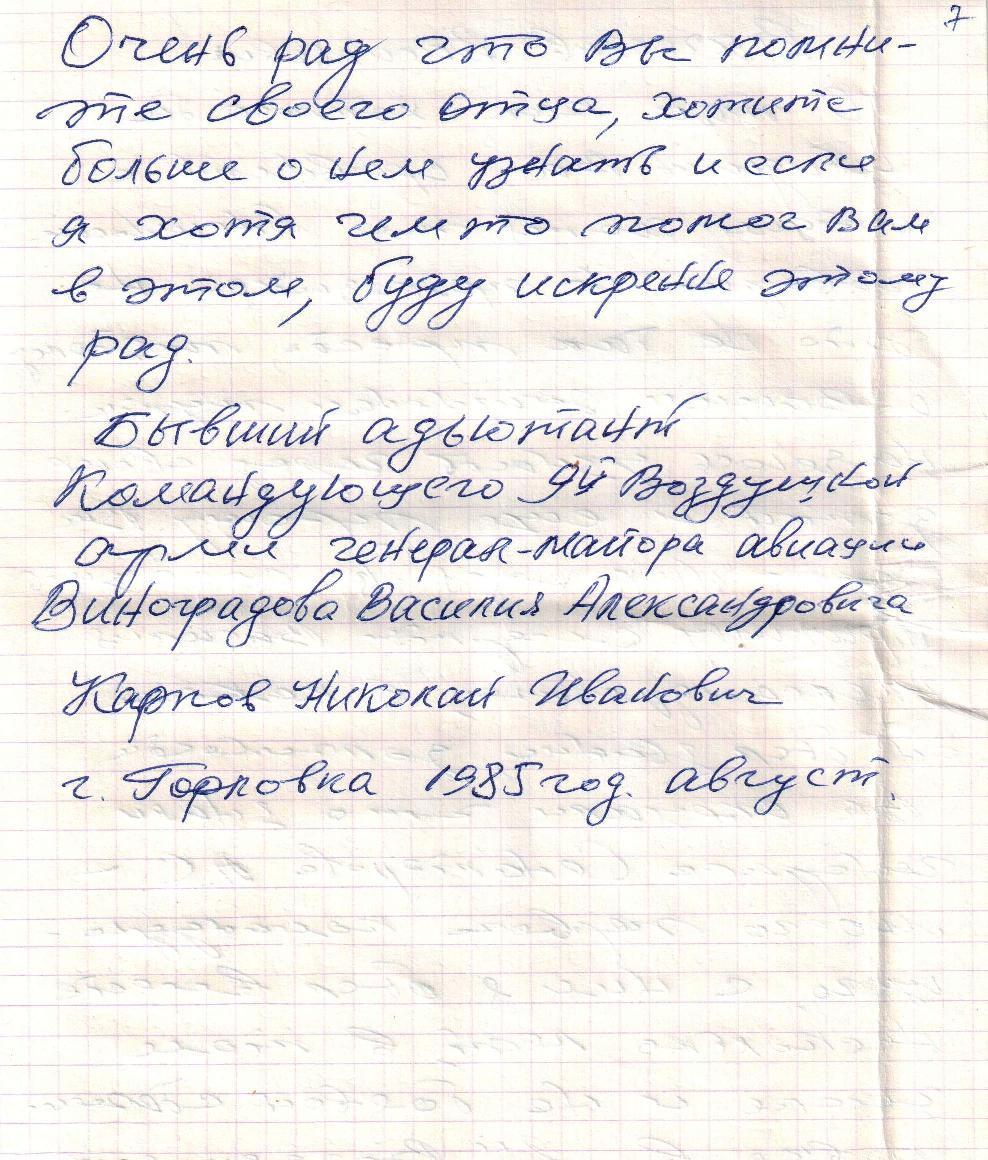 7
Очень рад что Вы помни-
те своего отца, хотите
больше о нем узнать и если
я хотя чем то помог Вам
в этом, буду искрене этому
рад.
Бывший адьютант
Командующего 9й Воздушной
армии генерал-майора авиации
Виноградова Василия Александровича
Карпов Николай Иванович
г. Горловка 1985 год. август.